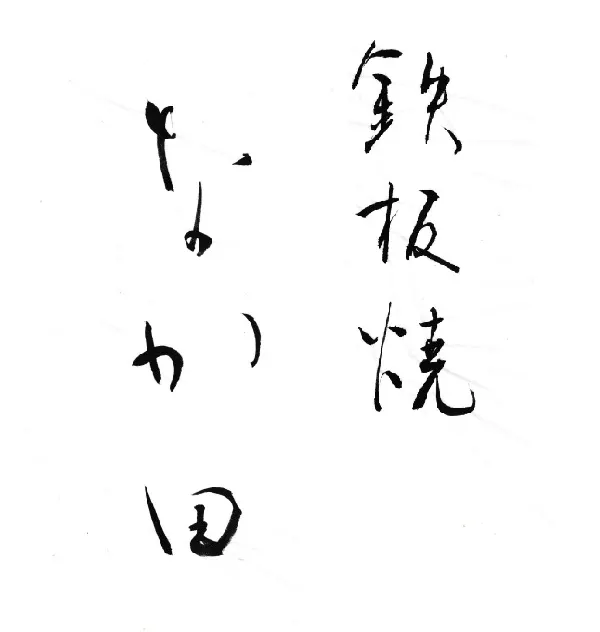 鉄板焼
なか田